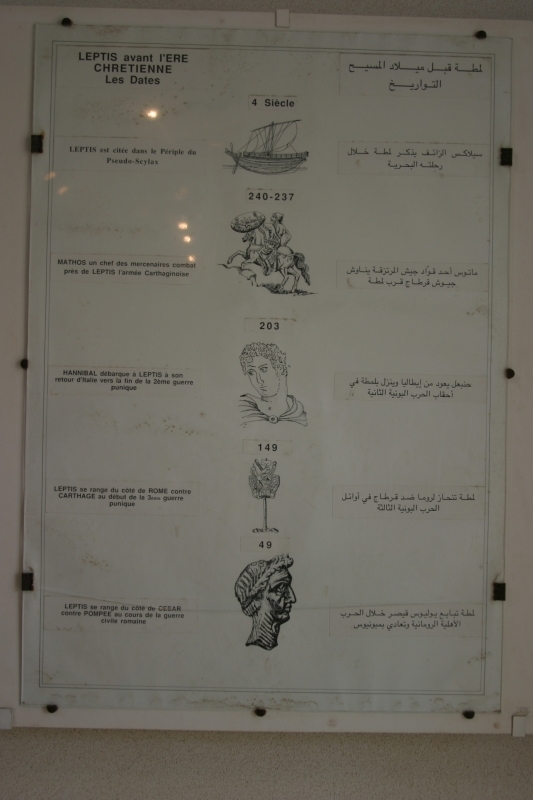 LEPTIS avant l'ERE
CHRETIENNE
Les Dates
لمطة قبل ميلاد المسيح
التواريخ
4 Siècle
LEPTIS est citée dans le Périple du
Pseudo-Scylax
سيلاكس الزائف يذكر لمطة خلال
رحلته البحرية
240-237
MATHOS un chef des mercenaires combat
près de LEPTIS l'armée Carthaginoise
ماتوس أحد قوّاد جيش المرتزقة يناوش
جيوش قرطاج قرب لمطة
203
HANNIBAL débarque à LEPTIS à son
retour d'Italie vers la fin de la 2ème guerre
punique
حنبعل يعود من إيطاليا وينزل بلمطة في
أعقاب الحرب البونية الثانية
149
LEPTIS se range du côté de ROME contre
CARTHAGE au début de la 3ème guerre
punique
لمطة تنحاز لروما ضد قرطاج في أوائل
الحرب البونية الثالثة
49
LEPTIS se range du côté de CESAR
contre POMPEE au cours de la guerre
civile romaine
لمطة تبايع يوليوس قيصر خلال الحرب
الأهلية الرومانية وتعادي بمبونيوس